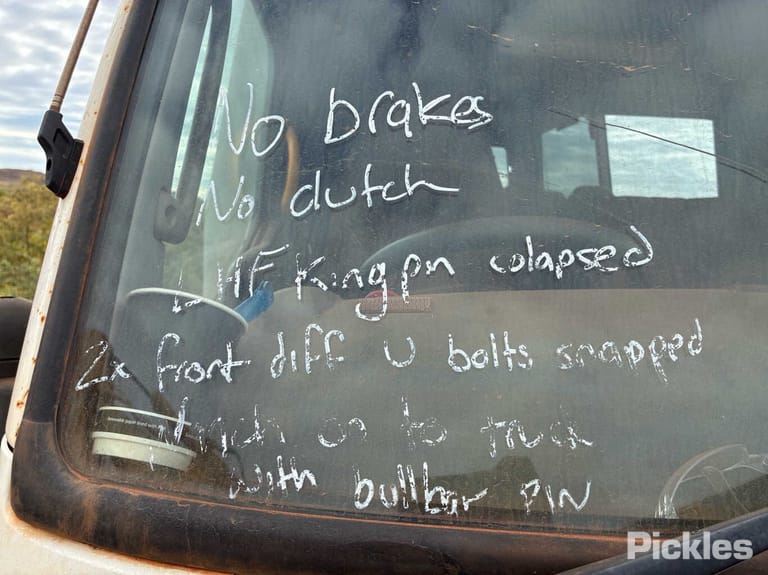 No brakes
No clutch
LHF King pn colapsed
2x front diff U bolts snapped
Winch on to truck
with bullbar PIN
Pickles